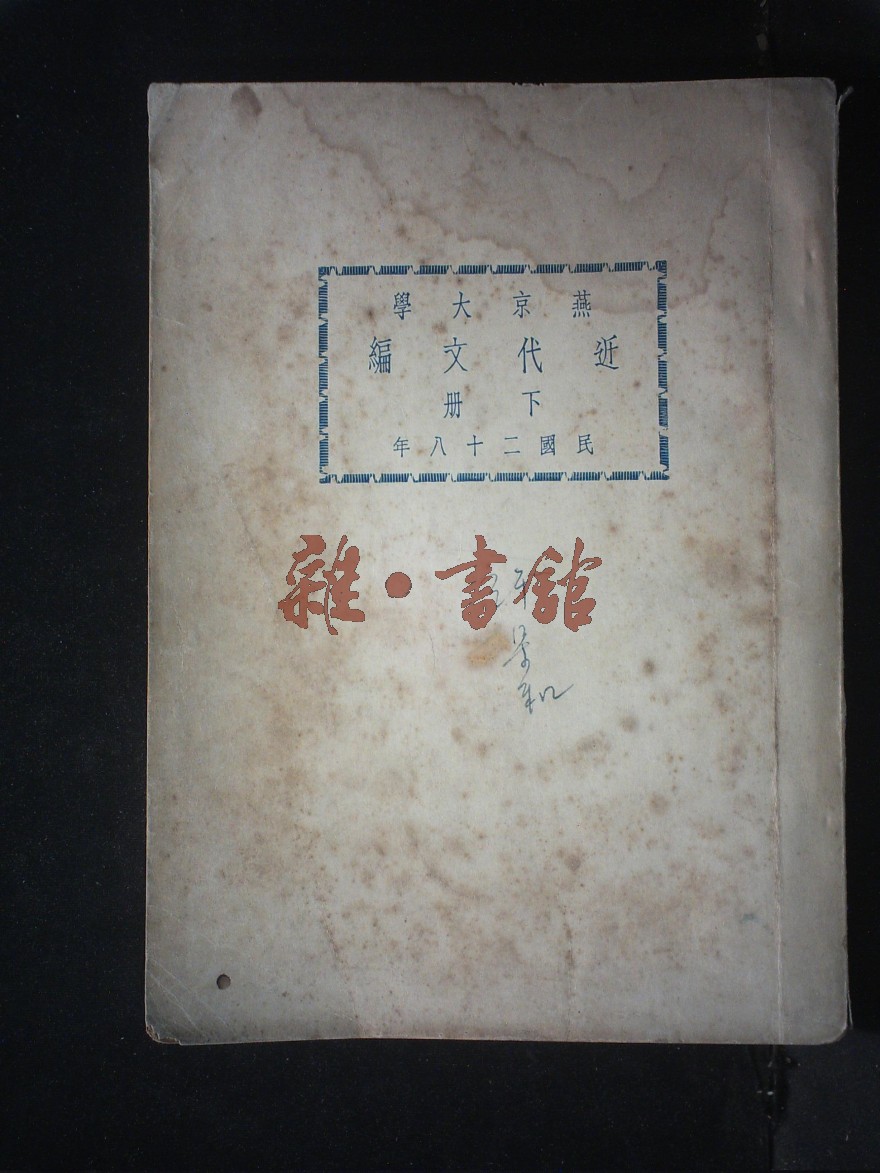 燕京大學
近代文編
下册
民國二十八年
雜·書館